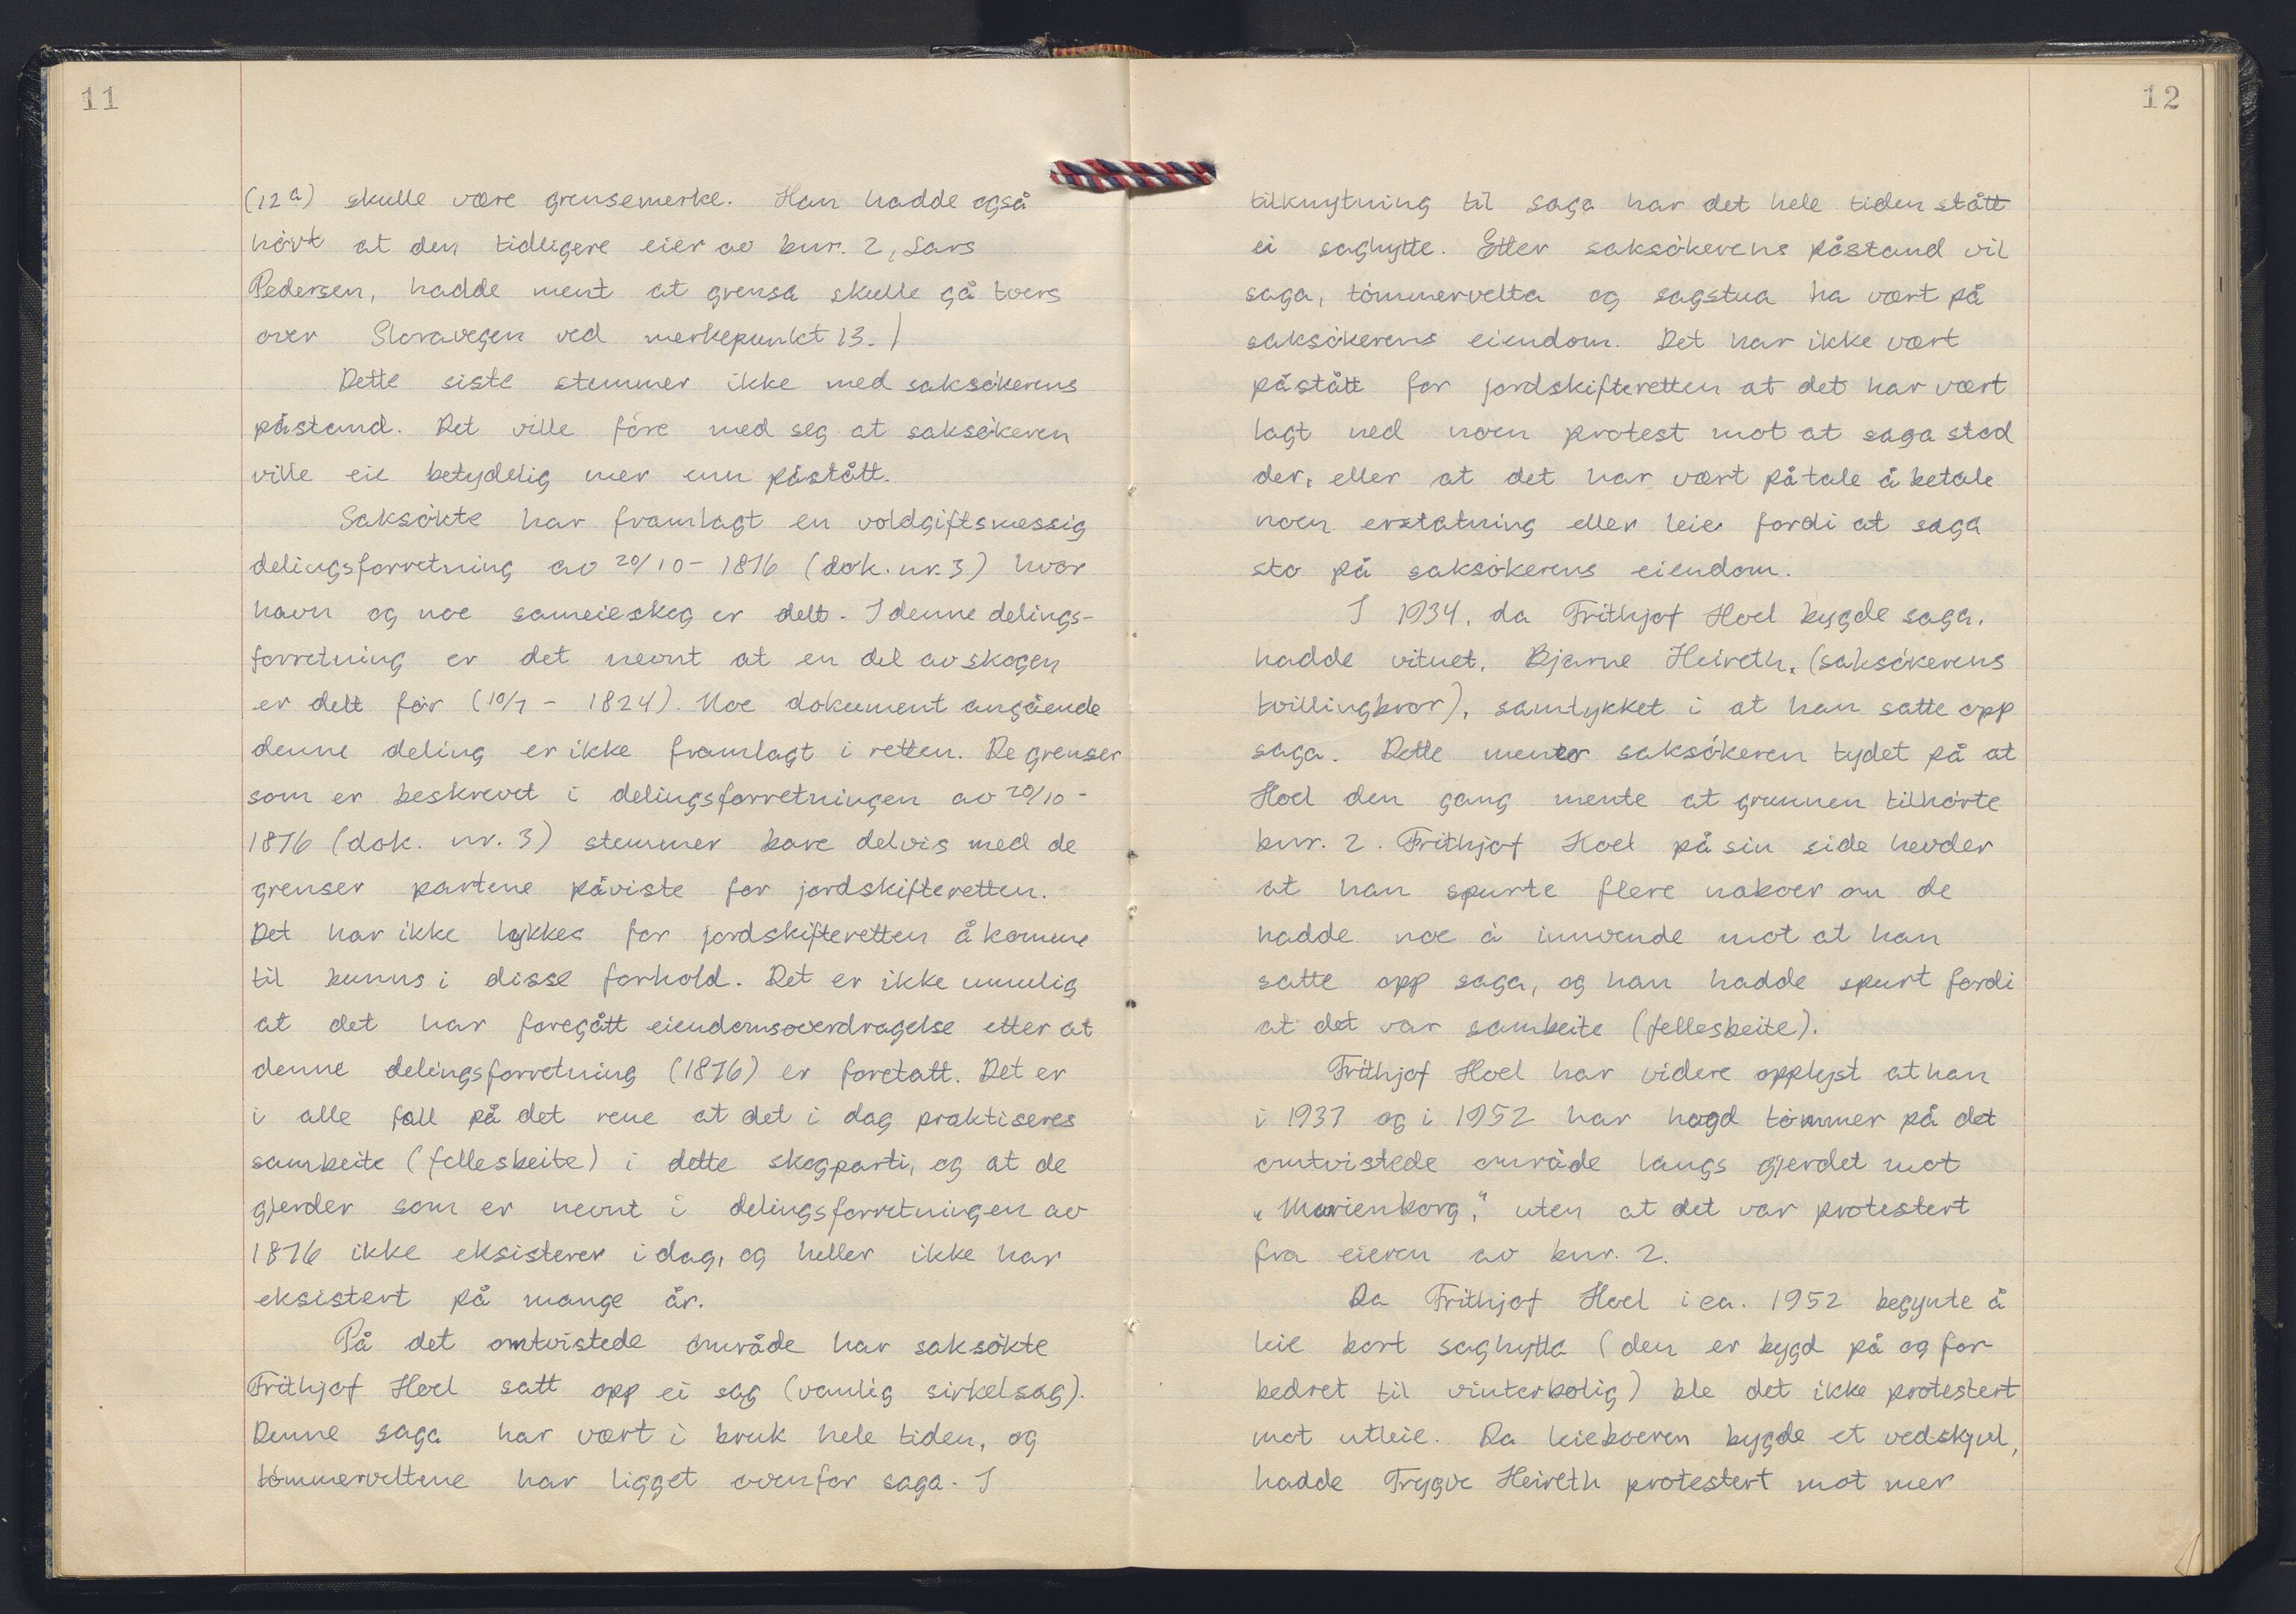 11
(12a) skulle være grensemerke. Han hadde også
hørt at den tidligere eier av bnr. 2, Lars
Pedersen, hadde ment at grensa skulle gå tvers
over Sloravegen ved merkepunkt 13. /
Dette siste stemmer ikke med saksøkerens
påstand. Det ville føre med seg at saksøkeren
ville eie betydelig mer enn påstått.
Saksøkte har framlagt en voldgiftsmessig
delingsforretning av 20/10 - 1876 (dok. nr. 3) hvor
havn og noe sameieskog er delt. I denne delings-
forretning er det nevnt at en del av skogen
er delt før (10/7 - 1824). Noe dokument angående
denne deling er ikke framlagt i retten. De grenser
som er beskrevet i delingsforretningen av 20/10 -
1876 (dok. nr. 3) stemmer bare delvis med de
grenser partene påviste for jordskifteretten.
Det har ikke lykkes for jordskifteretten å komme
til bunns i disse forhold. Det er ikke umulig
at det har foregått eiendomsoverdragelse etter at
denne delingsforretning (1876) er foretatt. Det er
i alle fall på det rene at det i dag praktiseres
sambeite (fellesbeite) i dette skogparti, og at de
gjerder som er nevnt i delingsforretningen av
1876 ikke eksisterer i dag, og heller ikke har
eksistert på mange år.
På det omtvistede område har saksøkte
Frithjof Hoel satt opp ei sag (vanlig sirkelsag).
Denne saga har vært i bruk hele tiden, og
tømmerveltene har ligget ovenfor saga. I
12
tilknytning til saga har det hele tiden stått
ei saghytte. Etter saksøkerens påstand vil
saga, tømmervelta og sagstua ha vært på
saksøkerens eiendom. Det har ikke vært
påstått for jordskifteretten at det har vært
lagt ned noen protest mot at saga stod
der, eller at det har vært på tale å betale
noen erstatning eller leie fordi at saga
sto på saksøkerens eiendom.
I 1934, da Frithjof Hoel bygde saga,
hadde vitnet, Bjarne Heireth, (saksøkerens
tvillingbror), samtykket i at han satte opp
saga. Dette mener saksøkeren tydet på at
Hoel den gang mente at grunnen tilhørte
bnr. 2. Frithjof Hoel på sin side hevder
at han spurte flere naboer om de
hadde noe å innvende mot at han
satte opp saga, og han hadde spurt fordi
at det var sambeite (fellesbeite).
Frithjof Hoel har videre opplyst at han
i 1937 og i 1952 har hogd tømmer på det
omtvistede område langs gjerdet mot
"Marienborg," uten at det var protestert
fra eieren av bnr. 2.
Da Frithjof Hoel i ca. 1952 begynte å
leie bort saghytta (den er bygd på og for-
bedret til vinterbolig) ble det ikke protestert
mot utleie. Da leieboeren bygde et vedskjul,
hadde Trygve Heireth protestert mot mer